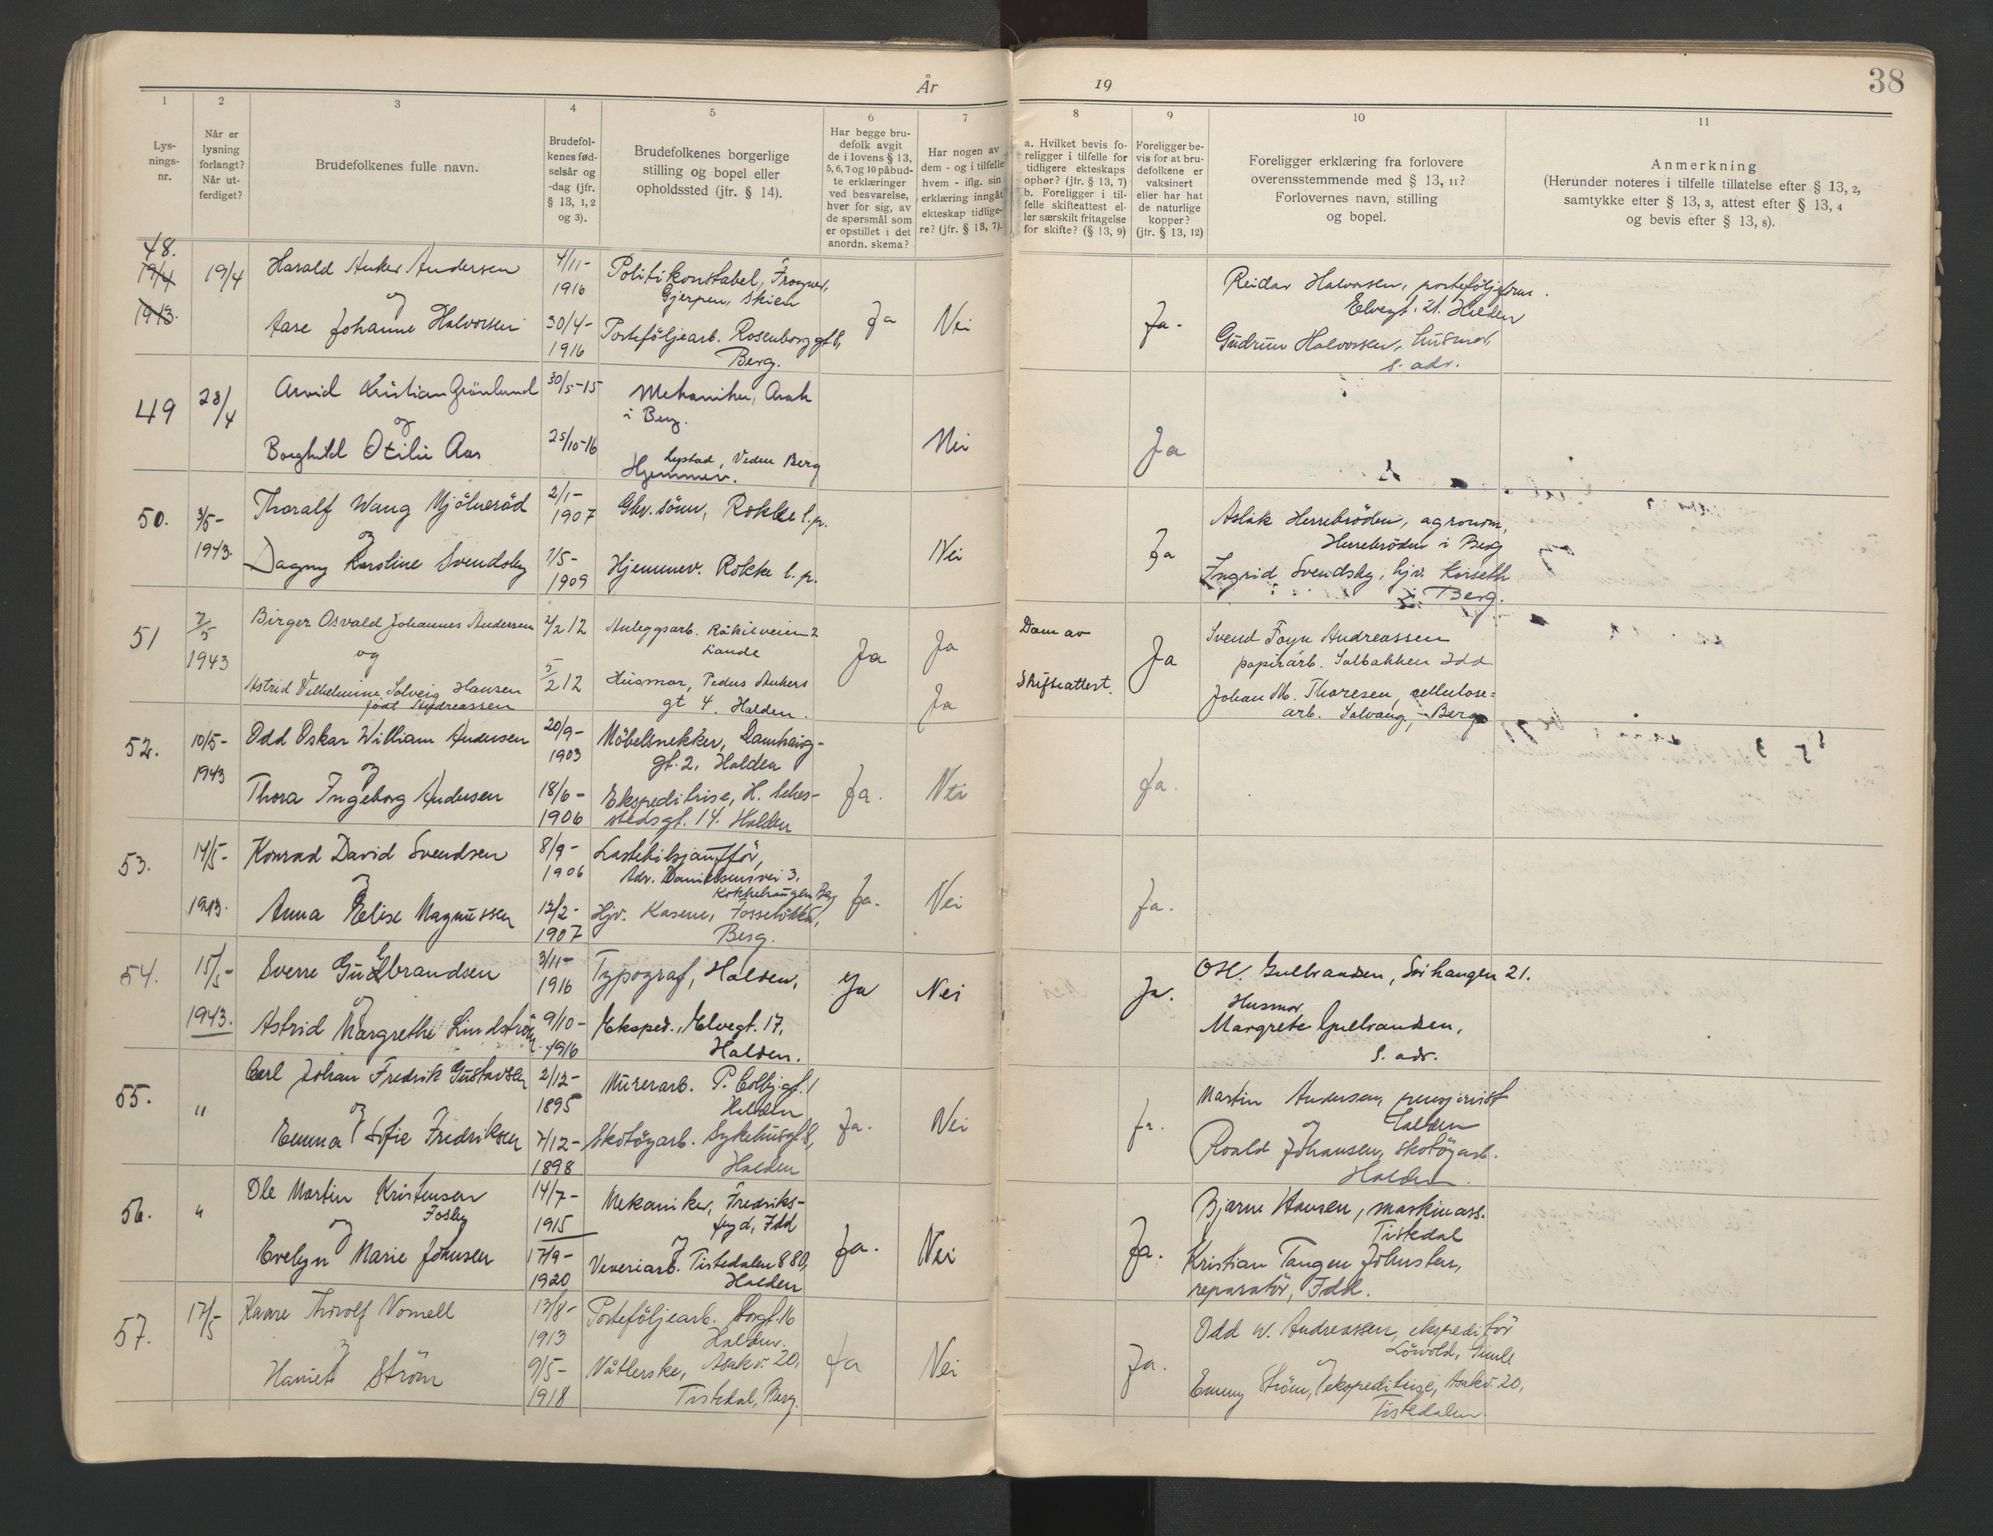 År
19
38
1
2
3
4
5
6
7
8
9
10
11
Lys-
nings-
nr.
Når er
lysning
forlangt?
Når ut-
ferdiget?
Brudefolkenes fulle navn.
Brudefol-
kenes fød-
selsår og
-dag (jfr.
§ 13, 1, 2
og 3).
Brudefolkenes borgerlige
stilling og bopel eller
opholdssted (jfr. § 14).
Har begge bru-
defolk avgit
de i lovens § 13,
5, 6, 7 og 10 påbud-
te erklæringer
ved besvarelse,
hver for sig, av
de spørsmål som
er opstillet i det
anordn. skema?
Har nogen av
dem - og i tilfelle
hvem - iflg. sin
erklæring inngåt
ekteskap tidlige-
re? (jfr. § 13, 7).
a. Hvilket bevis fo-
religger i tilfelle for
tidligere ekteskaps
ophør? (jfr. § 13, 7)
b. Foreligger i til-
felle skifteattest el-
ler særskilt fritagelse
for skifte? (§ 13, 9)
Foreligger be-
vis for at bru-
defolkene er
vaksinert
eller har hat
de naturlige
kopper?
(jfr. § 13, 12)
Foreligger erklæring fra forlovere
overensstemmende med § 13, 11?
Forlovernes navn, stilling
og bopel.
Anmerkning
(Herunder noteres i tilfelle tillatelse efter § 13, 2,
samtykke efter § 13, 3, attest efter § 13, 4
og bevis efter § 13, 8).
48.
19/4
1943.
19/4
Harald Anker Andersen
og
Aase Johanne Halvorsen
4/11-
1916
30/4-
1916
Politikonstabel, Frogner,
Gjerpen, Skien
Porteföljearb. Rosenborggt. 8,
Berg.
Ja
Nei
Ja.
Reidar Halvorsen, porteföljeform.
Elvegt. 21. Halden
Gudrun Halvorsen, husmor,
s. adr.
49
28/4
Arvid Kristian Grönlund
og
Borghild Otilie Aas
30/5-15
25/10-16
Mekaniker, Asak
i Berg.
Lystad, Veden Berg
Hjemmev.
Nei
Ja
50.
3/5-
1943.
Thoralf Wang Mjölneröd
og
Dagny Karoline Svendsby
2/1-
1907
7/5-
1909
Gbr. sönn, Rokke l.p.
Hjemmev. Rokke l.p.
Nei
Ja
Aslak Herrebröden, agronom,
Herrebröden i Berg
Ingrid Svendsby, hjv. Korseth
i Berg.
51
7/5
1943
Birger Osvald Johannes Andersen
og
Astrid Vilhelmine Solveig Hansen
födt Andreassen
2/2 12
5/2 12
Anleggsarb. Råkilveien 2
Lande
Husmor, Peder Ankers
gt 4. Halden.
Ja
Ja
Ja
Dom av
Skifteattest.
Ja
Svend Foyn Andreassen
papirarb. Solbakken Idd
Johan M. Thoresen, cellulose=
arb. Solvang, Berg
52.
10/5-
1943
Odd Oskar William Andersen
og
Thora Ingeborg Andersen
20/9-
1903
18/6-
1906
Möbelsnekker, Damhaug-
gt. 2, Halden
Ekspeditrise, H. Sehes-
stedsgt. 14. Halden
Ja.
Nei
Ja.
53.
14/5-
1943.
Konrad David Svendsen
og
Anna Elise Magnussen
8/9-
1906
12/2-
1907
Lastebilsjafför,
Adr. Danielsensvei 3,
Kokkehaugen Berg
Hjv. Kasene, Fosselökka,
Berg.
Ja.
Nei
Ja.
54.
15/5-
1943.
Sverre Gulbrandsen
og
Astrid Margrethe Lundström
3/11-
1916
9/10-
1916
Typograf, Halden,
Eksped., Elvegt. 17,
Halden.
Ja
Nei
Ja.
Gulbrandsen, Sørhaugen 21.
Husmor
Margrete Gulbrandsen,
s. adr.
55.
"
Carl Johan Fredrik Gustavsen
og
Emma Sofie Fredriksen
2/12-
1895
7/12-
1898
Murerarb. P. Colbj.gt. 1
Halden
Skotöyarb. Sykehusgt. 8,
Halden
Ja.
Nei
Ja.
Martin Andersen, pensjonist
Halden
Roald Johansen, skotöyarb.
Halden.
56.
"
Ole Martin Kristensen
Fosby
og
Evelyn Marie Johnsen
14/7-
1915
17/9-
1920
Mekaniker, Fredriks-
fryd, Idd
Veveriarb. Tistedalen 880,
Halden
Ja.
Nei
Ja.
Bjarne Hansen, maskinass.
Tistedal
Kristian Tangen Johnsen,
reparatör, Idd.
57.
17/5
Kaare Thorolf Vomell
og
Harriet Ström
13/8-
1913
9/5-
1918
Porteföljearb. Borgt. 16
Halden.
Våtlerske, Asakv. 20,
Tistedal, Berg.
Ja
Nei
Ja.
Odd W. Andreassen, ekspeditör
Lövold, Gimle
Emmy Ström, ekspeditrise, Asakv. 20,
Tistedalen.